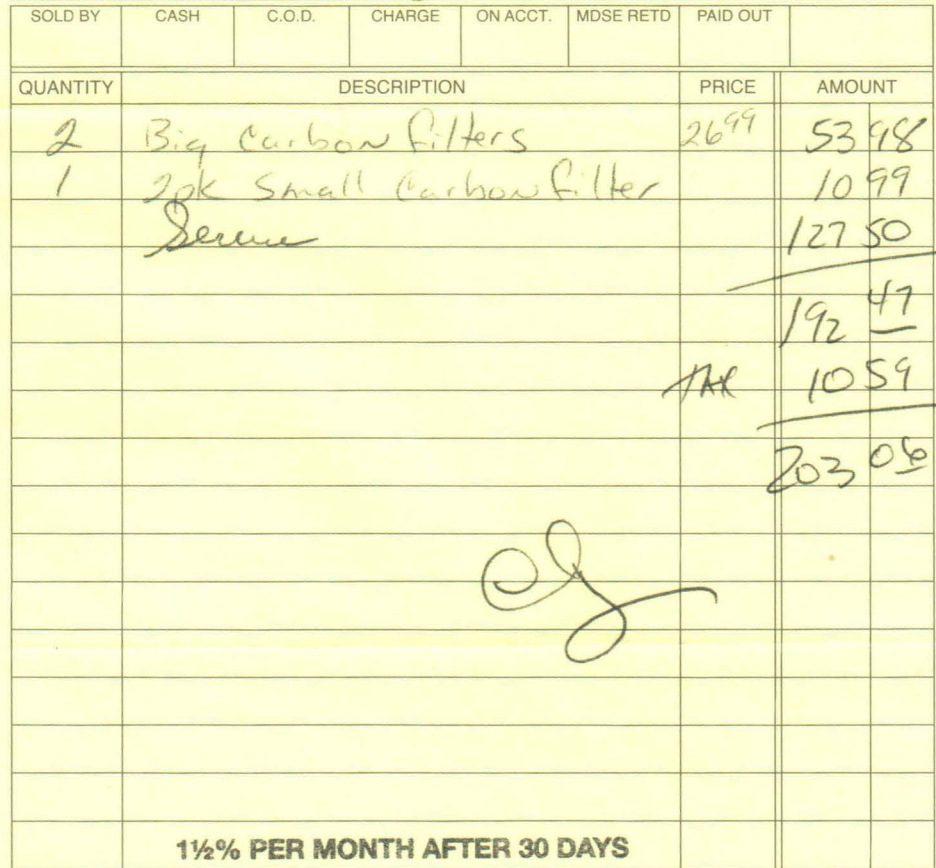 SOLD BY CASH C.O.D. CHARGE ON ACCT. MDSE RETD PAID OUT
QUANTITY DESCRIPTION PRICE AMOUNT
2 Big Carbon filters 26 99 53 98
1 2pk Small Carbon filter 10 99
Service 127 50
192 47
TAX 10 59
203 06
1½% PER MONTH AFTER 30 DAYS